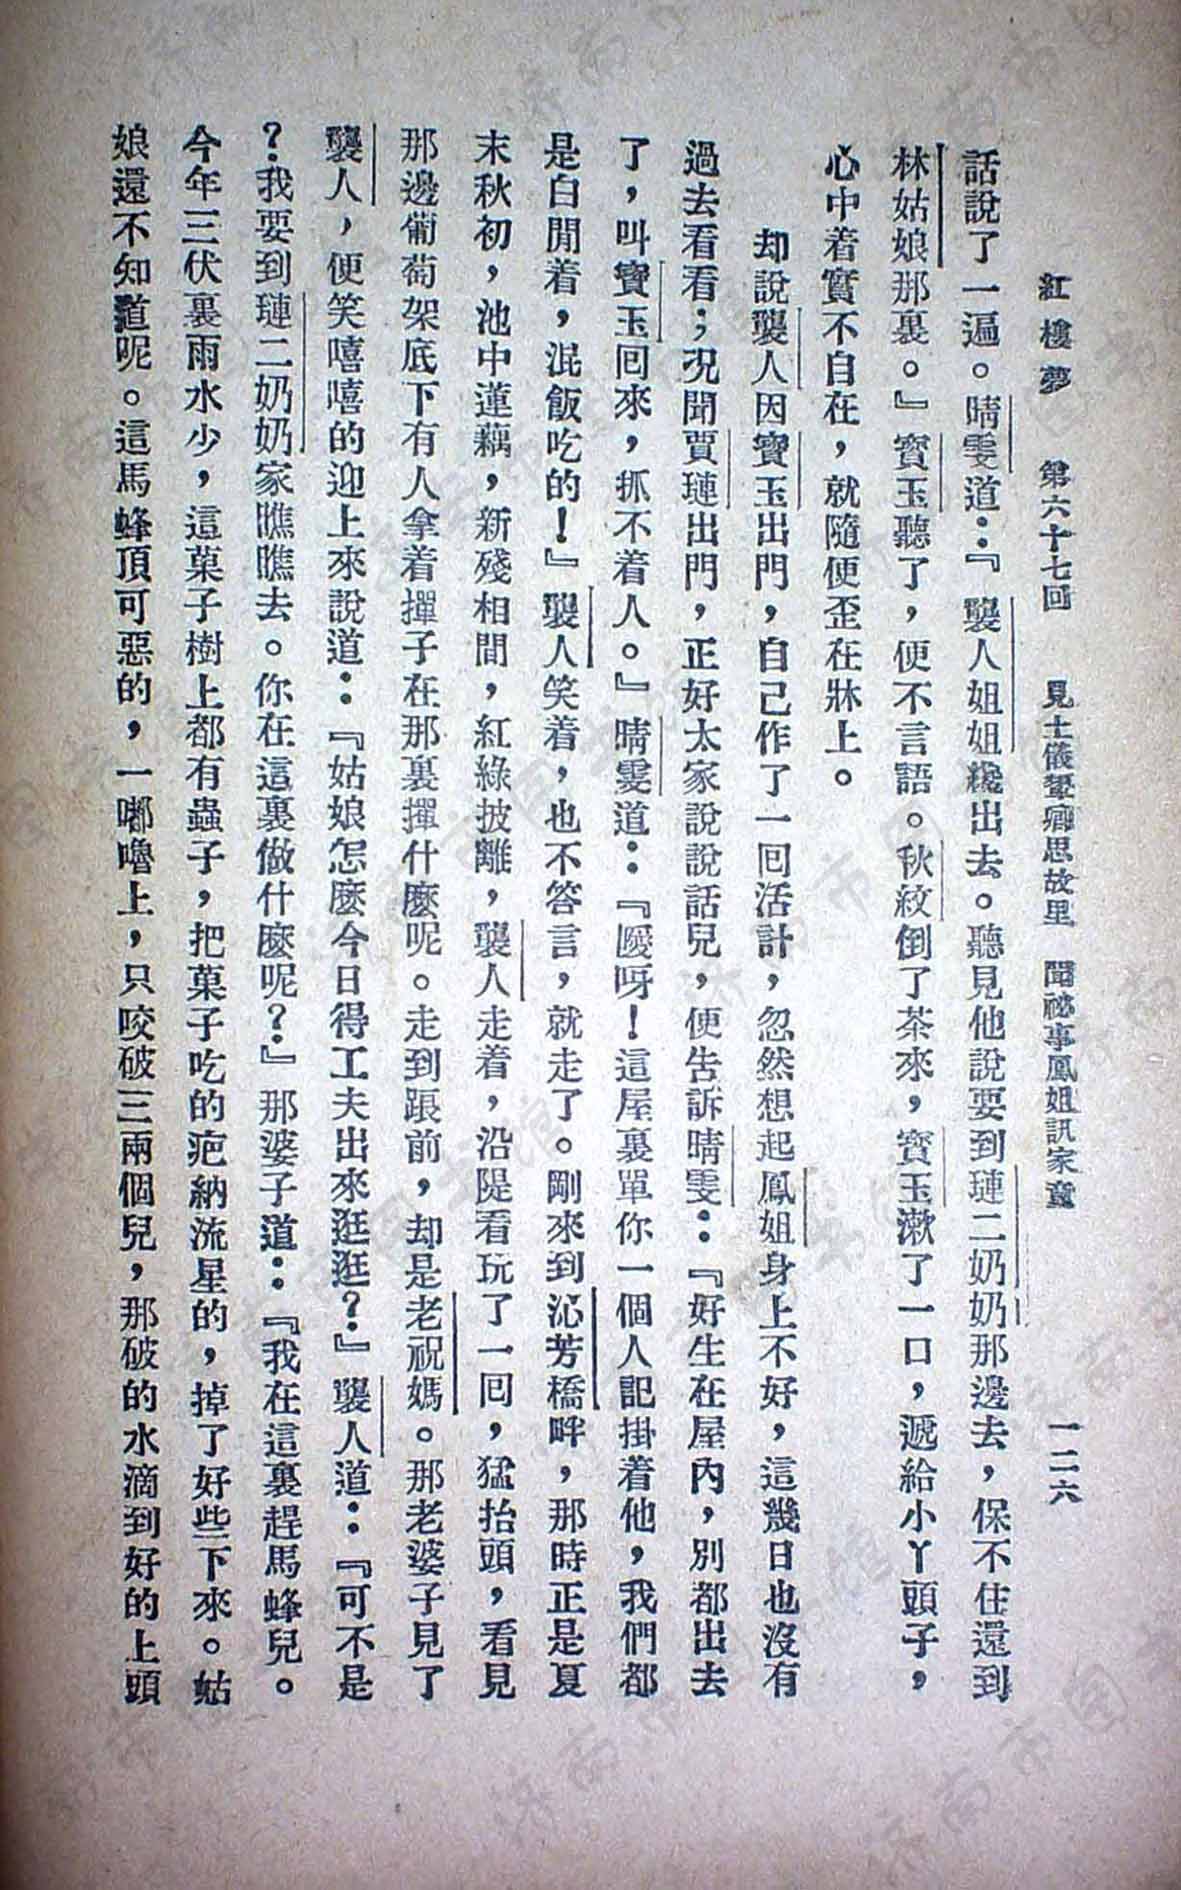 紅樓夢　第六十七回　見土儀顰卿思故里　聞祕事鳳姐訊家童　一二六
話說了一遍。晴雯道：『襲人姐姐纔出去。聽見他說要到璉二奶奶那邊去，保不住還到
林姑娘那裏。』寶玉聽了，便不言語。秋紋倒了茶來，寶玉漱了一口，遞給小丫頭子，
心中着實不自在，就隨便歪在牀上。
却說襲人因寶玉出門，自己作了一回活計，忽然想起鳳姐身上不好，這幾日也沒有
過去看看；况聞賈璉出門，正好太家說說話兒，便告訴晴雯：『好生在屋內，別都出去
了，叫寶玉回來，抓不着人。』晴雯道：『噯呀！這屋裏單你一個人記掛着他，我們都
是白閒着，混飯吃的！』襲人笑着，也不答言，就走了。剛來到沁芳橋畔，那時正是夏
末秋初，池中蓮藕，新殘相間，紅綠披離，襲人走着，沿隄看玩了一回，猛抬頭，看見
那邊葡萄架底下有人拿着撣子在那裏撣什麼呢。走到跟前，却是老祝媽。那老婆子見了
襲人，便笑嘻嘻的迎上來說道：『姑娘怎麼今日得工夫出來逛逛？』襲人道：『可不是
？我要到璉二奶奶家瞧瞧去。你在這裏做什麼呢？』那婆子道：『我在這裏趕馬蜂兒。
今年三伏裏雨水少，這菓子樹上都有蟲子，把菓子吃的疤納流星的，掉了好些下來。姑
娘還不知道呢。這馬蜂頂可惡的，一嘟嚕上，只咬破三兩個兒，那破的水滴到好的上頭
济南市图书馆